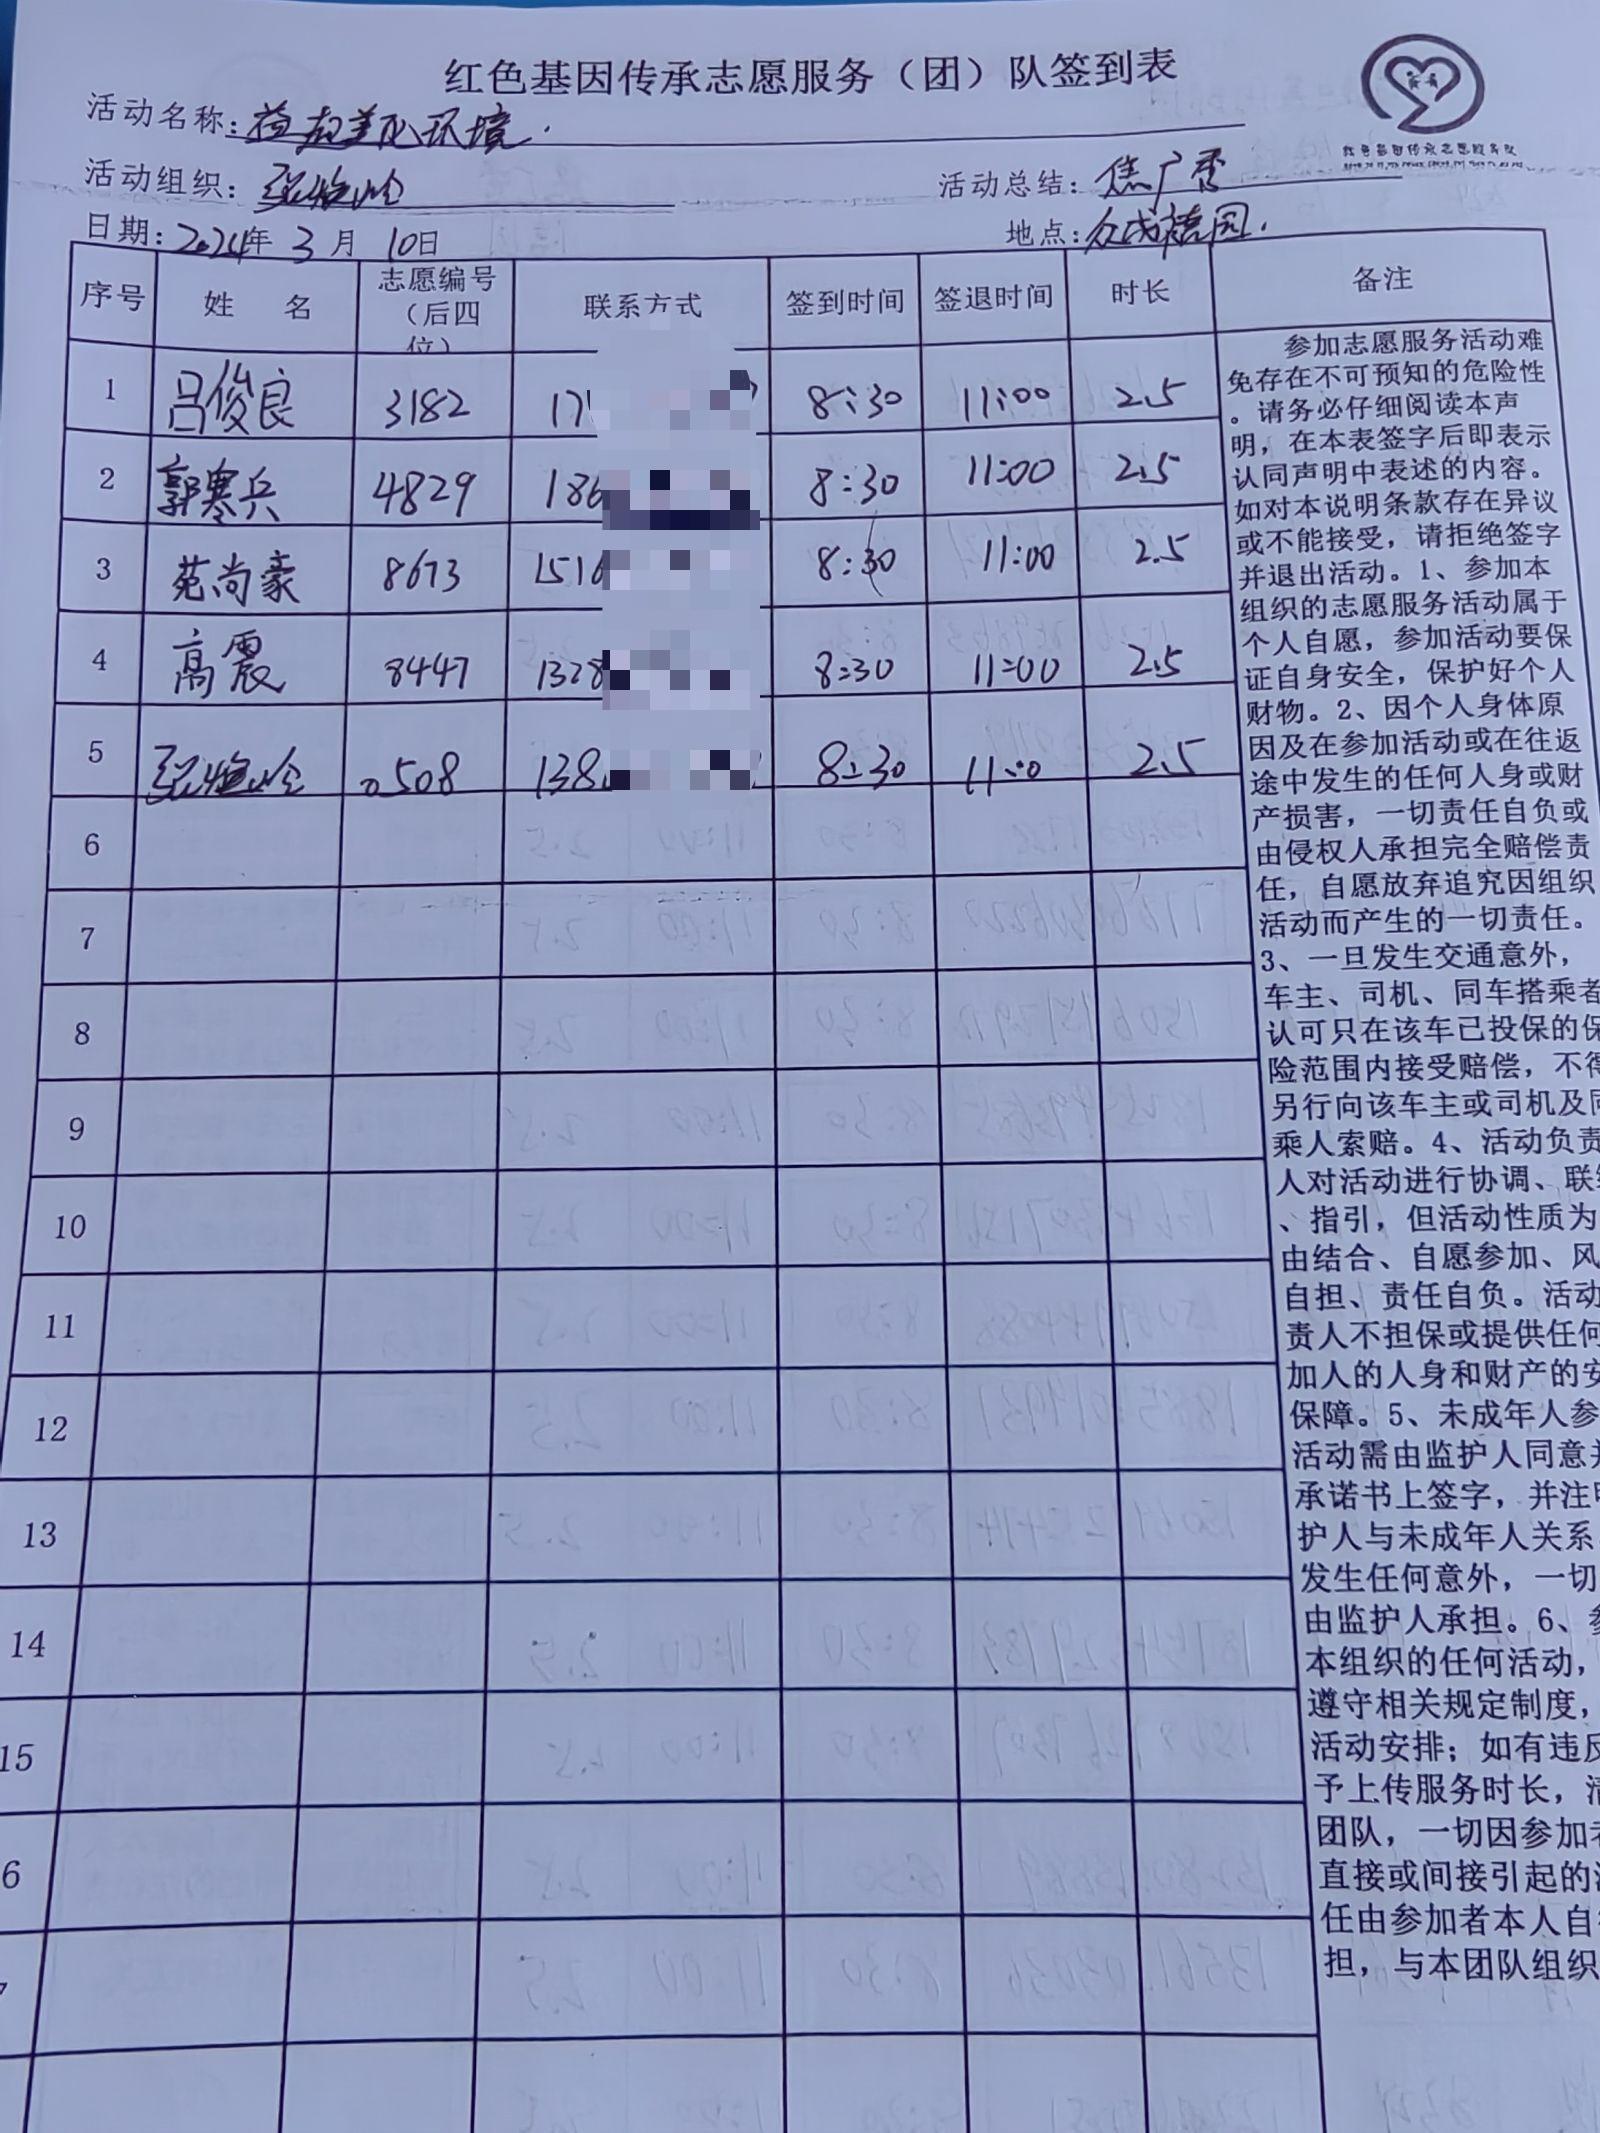 红色基因传承志愿服务（团）队签到表
活动名称：益起美化环境.
活动组织：
活动总结：焦广香
日期：2024年 3月 10日
地点：众成禧园.
序号 姓 名 志愿编号（后四位） 联系方式 签到时间 签退时间 时长 备注
1 吕俊良 3182 17 8:30 11:00 2.5
2 郭寒兵 4829 186 8:30 11:00 2.5
3 苑尚豪 8673 1516 8:30 11:00 2.5
4 高震 8447 1328 8:30 11:00 2.5
5 0508 138 8:30 11:00 2.5
6
7
8
9
10
11
12
13
14
15
6
7
参加志愿服务活动难
免存在不可预知的危险性
。请务必仔细阅读本声
明，在本表签字后即表示
认同声明中表述的内容。
如对本说明条款存在异议
或不能接受，请拒绝签字
并退出活动。1、参加本
组织的志愿服务活动属于
个人自愿，参加活动要保
证自身安全，保护好个人
财物。2、因个人身体原
因及在参加活动或在往返
途中发生的任何人身或财
产损害，一切责任自负或
由侵权人承担完全赔偿责
任，自愿放弃追究因组织
活动而产生的一切责任。
3、一旦发生交通意外，
车主、司机、同车搭乘者
认可只在该车已投保的保
险范围内接受赔偿，不得
另行向该车主或司机及同
乘人索赔。4、活动负责
人对活动进行协调、联络
、指引，但活动性质为
由结合、自愿参加、风
自担、责任自负。活动
责人不担保或提供任何
加人的人身和财产的安
保障。5、未成年人参
活动需由监护人同意并
承诺书上签字，并注明
护人与未成年人关系
发生任何意外，一切
由监护人承担。6、参
本组织的任何活动，
遵守相关规定制度，
活动安排；如有违反
予上传服务时长，清
团队，一切因参加者
直接或间接引起的法
任由参加者本人自行
担，与本团队组织